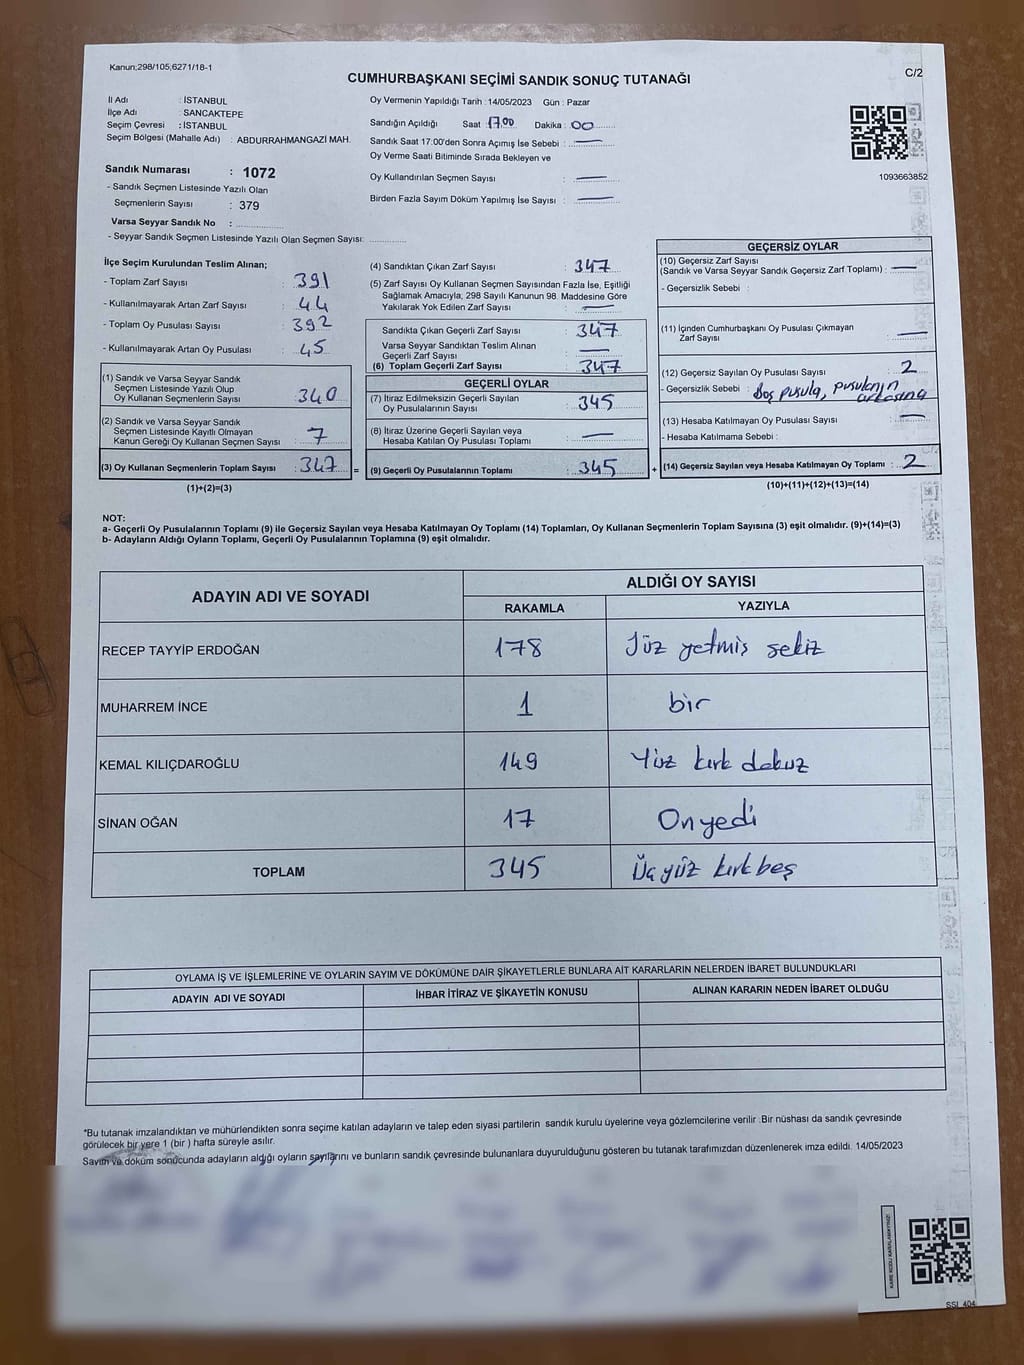 Kanun;298/105,6271/18-1
CUMHURBAŞKANI SEÇİMİ SANDIK SONUÇ TUTANAĞI
C/2
İl Adı : İSTANBUL
İlçe Adı : SANCAKTEPE
Seçim Çevresi : İSTANBUL
Seçim Bölgesi (Mahalle Adı) : ABDURRAHMANGAZİ MAH.
Oy Vermenin Yapıldığı Tarih : 14/05/2023 Gün : Pazar
Sandığın Açıldığı Saat 17.00 Dakika : 00
Sandık Saat 17:00'den Sonra Açımış İse Sebebi : —
Oy Verme Saati Bitiminde Sırada Bekleyen ve
Oy Kullandırılan Seçmen Sayısı : —
Birden Fazla Sayım Döküm Yapılmış İse Sayısı : —
1093663852
Sandık Numarası : 1072
- Sandık Seçmen Listesinde Yazılı Olan
Seçmenlerin Sayısı : 379
Varsa Seyyar Sandık No : ..............
- Seyyar Sandık Seçmen Listesinde Yazılı Olan Seçmen Sayısı: ............
İlçe Seçim Kurulundan Teslim Alınan;
- Toplam Zarf Sayısı : 391
- Kullanılmayarak Artan Zarf Sayısı : 44
- Toplam Oy Pusulası Sayısı : 392
- Kullanılmayarak Artan Oy Pusulası : 45
(1) Sandık ve Varsa Seyyar Sandık
Seçmen Listesinde Yazılı Olup
Oy Kullanan Seçmenlerin Sayısı : 340
(2) Sandık ve Varsa Seyyar Sandık
Seçmen Listesinde Kayıtlı Olmayan
Kanun Gereği Oy Kullanan Seçmen Sayısı : 7
(3) Oy Kullanan Seçmenlerin Toplam Sayısı : 347 =
(1)+(2)=(3)
(4) Sandıktan Çıkan Zarf Sayısı : 347
(5) Zarf Sayısı Oy Kullanan Seçmen Sayısından Fazla İse, Eşitliği
Sağlamak Amacıyla, 298 Sayılı Kanunun 98. Maddesine Göre
Yakılarak Yok Edilen Zarf Sayısı : —
Sandıkta Çıkan Geçerli Zarf Sayısı : 347
Varsa Seyyar Sandıktan Teslim Alınan
Geçerli Zarf Sayısı : —
(6) Toplam Geçerli Zarf Sayısı : 347
GEÇERLİ OYLAR
(7) İtiraz Edilmeksizin Geçerli Sayılan
Oy Pusulalarının Sayısı : 345
(8) İtiraz Üzerine Geçerli Sayılan veya
Hesaba Katılan Oy Pusulası Toplamı : —
(9) Geçerli Oy Pusulalarının Toplamı : 345 +
GEÇERSİZ OYLAR
(10) Geçersiz Zarf Sayısı
(Sandık ve Varsa Seyyar Sandık Geçersiz Zarf Toplamı) : —
- Geçersizlik Sebebi :
(11) İçinden Cumhurbaşkanı Oy Pusulası Çıkmayan
Zarf Sayısı : —
(12) Geçersiz Sayılan Oy Pusulası Sayısı : 2
- Geçersizlik Sebebi : Boş pusula, pusulanın
arkasına
(13) Hesaba Katılmayan Oy Pusulası Sayısı : —
- Hesaba Katılmama Sebebi :
(14) Geçersiz Sayılan veya Hesaba Katılmayan Oy Toplamı : 2
(10)+(11)+(12)+(13)=(14)
NOT:
a- Geçerli Oy Pusulalarının Toplamı (9) ile Geçersiz Sayılan veya Hesaba Katılmayan Oy Toplamı (14) Toplamları, Oy Kullanan Seçmenlerin Toplam Sayısına (3) eşit olmalıdır. (9)+(14)=(3)
b- Adayların Aldığı Oyların Toplamı, Geçerli Oy Pusulalarının Toplamına (9) eşit olmalıdır.
ADAYIN ADI VE SOYADI
ALDIĞI OY SAYISI
RAKAMLA YAZIYLA
RECEP TAYYİP ERDOĞAN 178 Yüz yetmiş sekiz
MUHARREM İNCE 1 bir
KEMAL KILIÇDAROĞLU 149 Yüz kırk dokuz
SİNAN OĞAN 17 Onyedi
TOPLAM 345 Üçyüz kırk beş
OYLAMA İŞ VE İŞLEMLERİNE VE OYLARIN SAYIM VE DÖKÜMÜNE DAİR ŞİKAYETLERLE BUNLARA AİT KARARLARIN NELERDEN İBARET BULUNDUKLARI
ADAYIN ADI VE SOYADI İHBAR İTİRAZ VE ŞİKAYETİN KONUSU ALINAN KARARIN NEDEN İBARET OLDUĞU
*Bu tutanak imzalandıktan ve mühürlendikten sonra seçime katılan adayların ve talep eden siyasi partilerin sandık kurulu üyelerine veya gözlemcilerine verilir .Bir nüshası da sandık çevresinde
görülecek bir yere 1 (bir ) hafta süreyle asılır.
Sayım ve döküm sonucunda adayların aldığı oyların sayılarını ve bunların sandık çevresinde bulunanlara duyurulduğunu gösteren bu tutanak tarafımızdan düzenlenerek imza edildi. 14/05/2023
KARE KODU KARALAMAYINIZ!
SSI_404